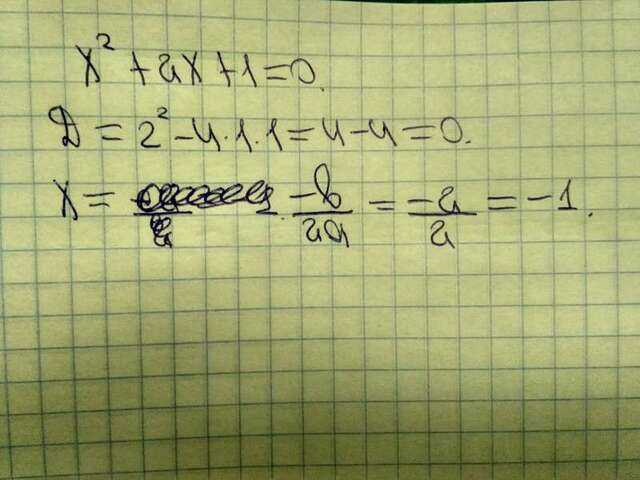 x² + 2x + 1 = 0.
D = 2² - 4·1·1 = 4 - 4 = 0.
x = -b/2a = -2/2 = -1.